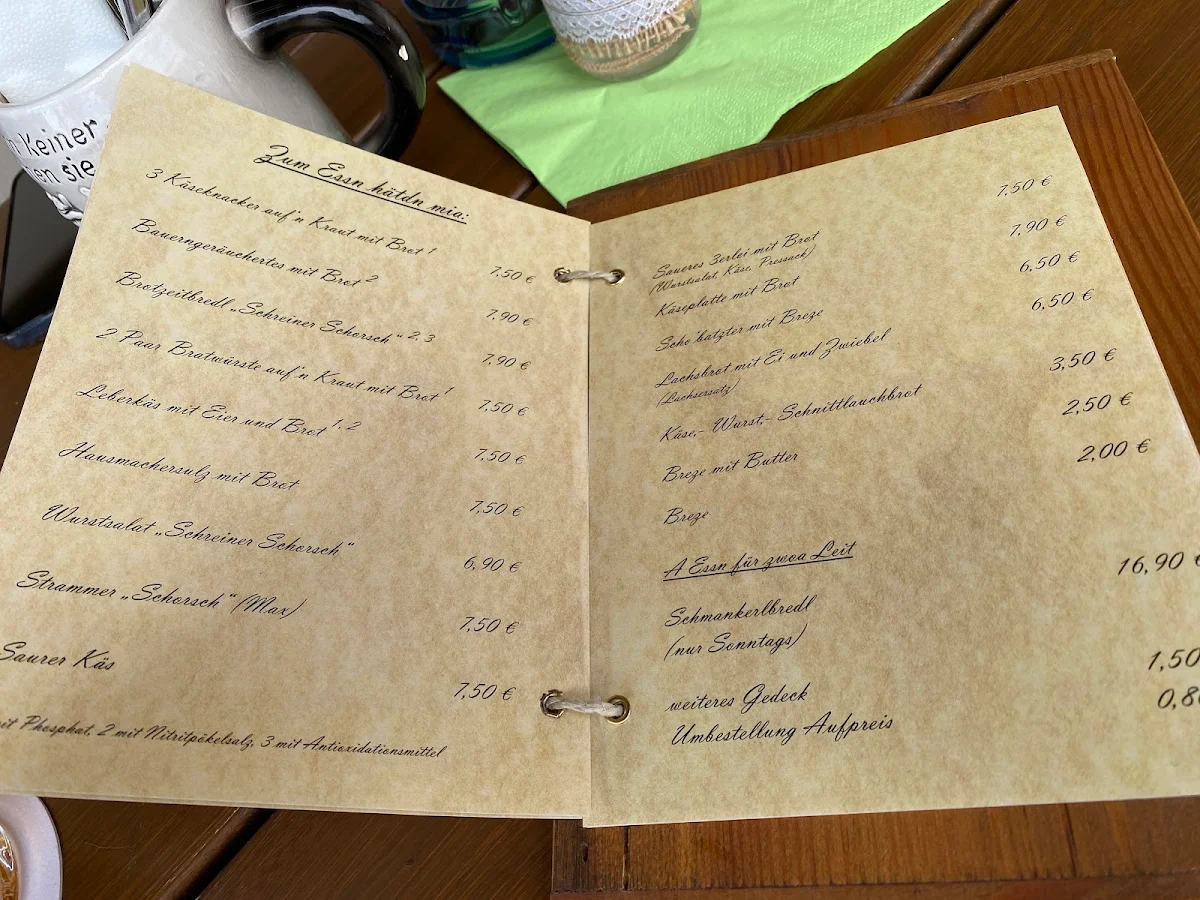 Keiner
sie
Zum Essn hätdn mia:
3 Käseknacker auf'n Kraut mit Brot ¹ 7,50 €
Bauerngeräuchertes mit Brot ² 7,90 €
Brotzeitbredl „Schreiner Schorsch“ ²,³ 7,90 €
2 Paar Bratwürste auf'n Kraut mit Brot ¹ 7,50 €
Leberkäs mit Eier und Brot ¹,² 7,50 €
Hausmachersulz mit Brot 7,50 €
Wurstsalat „Schreiner Schorsch“ 6,90 €
Strammer „Schorsch“ (Max) 7,50 €
Saurer Käs 7,50 €
mit Phosphat, 2 mit Nitritpökelsalz, 3 mit Antioxidationsmittel
Saueres 3erlei mit Brot 7,50 €
(Wurstsalat, Käse, Pressack)
Käseplatte mit Brot 7,90 €
Scho'batzter mit Breze 6,50 €
Lachsbrot mit Ei und Zwiebel 6,50 €
(Lachsersatz)
Käse,- Wurst,- Schnittlauchbrot 3,50 €
Breze mit Butter 2,50 €
Breze 2,00 €
A Essn für zwoa Leit
Schmankerlbredl 16,90 €
(nur Sonntags)
weiteres Gedeck 1,50
Umbestellung Aufpreis 0,8